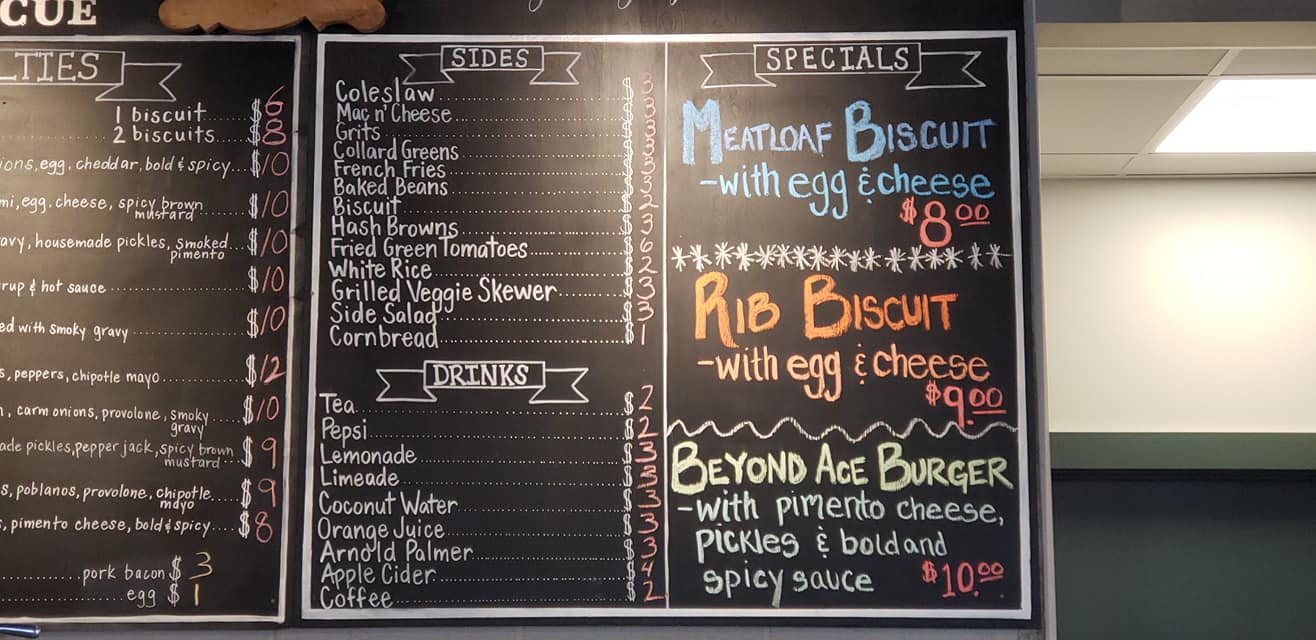 CUE
LTIES
1 biscuit $6
2 biscuits $8
ions, egg, cheddar, bold & spicy $10
mi, egg, cheese, spicy brown $10
mustard
avy, housemade pickles, smoked $10
pimento
rup & hot sauce $10
ed with smoky gravy $10
s, peppers, chipotle mayo $12
, carm onions, provolone, smoky $10
gravy
ade pickles, pepper jack, spicy brown $9
mustard
s, poblanos, provolone, chipotle $9
mayo
, pimento cheese, bold & spicy $8
pork bacon $3
egg $1
SIDES
Coleslaw $3
Mac n' Cheese $3
Grits $3
Collard Greens $3
French Fries $3
Baked Beans $3
Biscuit $2
Hash Browns $3
Fried Green Tomatoes $6
White Rice $2
Grilled Veggie Skewer $3
Side Salad $3
Cornbread $1
DRINKS
Tea $2
Pepsi $2
Lemonade $3
Limeade $3
Coconut Water $3
Orange Juice $3
Arnold Palmer $3
Apple Cider $4
Coffee $2
SPECIALS
MEATLOAF BISCUIT
-with egg & cheese
$8.00
RIB BISCUIT
-with egg & cheese
$9.00
BEYOND ACE BURGER
-with pimento cheese,
pickles & bold and
spicy sauce $10.00